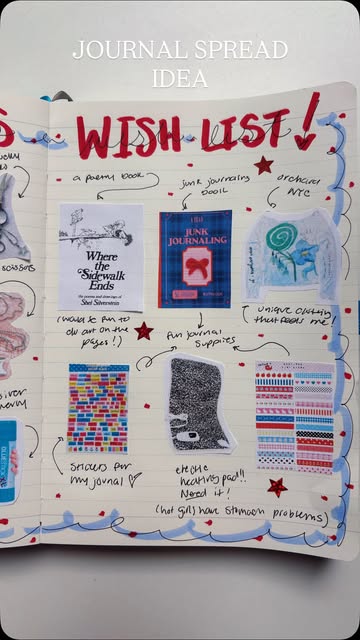 JOURNAL SPREAD
IDEA
WISH LIST!
a poemy book
junk journaling
book
orchard
NYC
scissors
Where
the
Sidewalk
Ends
the poems and drawings of
Shel Silverstein
JUNK
JOURNALING
(would be fun to
do art on the
pages!)
fun journal
supplies
unique clothing
that feels me
silver
stickers for
my journal
heating pad!!
Need it!
(hot girls have stomach problems)